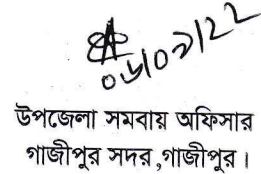 ০৬/০৩/22
উপজেলা সমবায় অফিসার
গাজীপুর সদর,গাজীপুর।